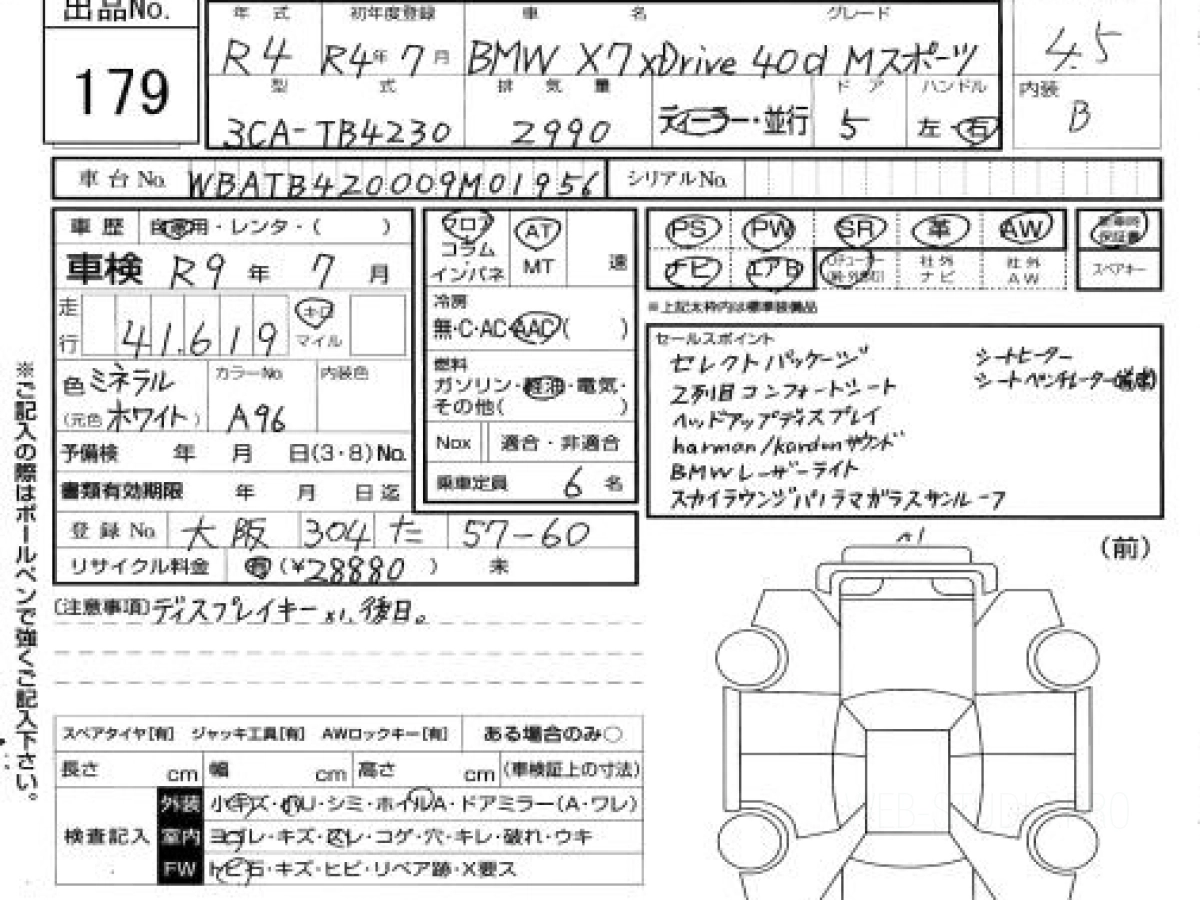 出品No.
179
年式 初年度登録 車名 グレード
R4 R4年7月 BMW X7 xDrive 40d Mスポーツ
4.5
型式 排気量 ドア ハンドル
3CA-TB4230 2990 ディーラー・並行 5 左・右
内装
B
車台No. WBATB420009M01956 シリアルNo.
車歴 自家用・レンタ・( )
車検 R9年 7月
走行 41,619 キロ マイル
色 ミネラル カラーNo. 内装色
(元色) ホワイト A96
予備検 年 月 日(3・8)No.
書類有効期限 年 月 日迄
登録No. 大阪 304 た 57-60
リサイクル料金 有 (¥28880) 未
フロア コラム・インパネ AT MT 速
冷房
無・C・AC・AAC( )
燃料
ガソリン・軽油・電気・
その他( )
Nox 適合・非適合
乗車定員 6名
PS PW SR 革 AW
ナビ エアB 社外ナビ 社外AW
保証書
スペアキー
※上記太枠内は標準装備品
セールスポイント
セレクトパッケージ
2列目コンフォートシート
ヘッドアップディスプレイ
harman/kardonサウンド
BMWレーザーライト
スカイラウンジパノラマガラスサンルーフ
シートヒーター
シートベンチレーター
※ご記入の際はボールペンで強くご記入下さい。
〔注意事項〕ディスプレイキーx1、後日。
(前)
スペアタイヤ[有] ジャッキ工具[有] AWロックキー[有] ある場合のみ○
長さ cm 幅 cm 高さ cm (車検証上の寸法)
検査記入
外装 小キズ・小U・シミ・ホイルA・ドアミラー(A・ワレ)
室内 ヨゴレ・キズ・スレ・コゲ・穴・キレ・破れ・ウキ
FW トビ石・キズ・ヒビ・リペア跡・X要ス